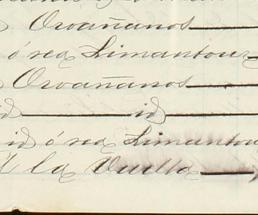 Ovañanos
ó sea Limantour
Ovañanos
id id
id ó sea Limantou
la Vuelta